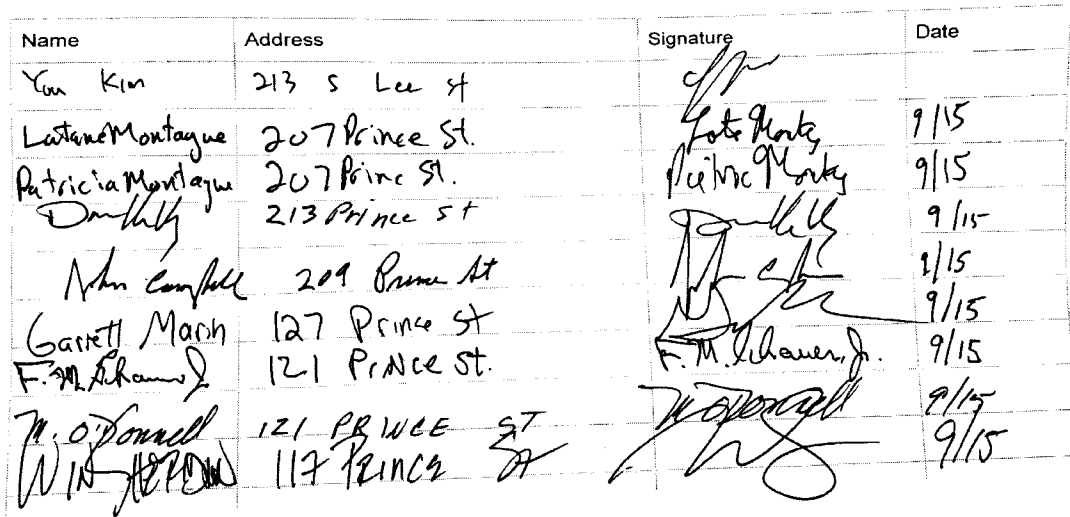 Name Address Signature Date
You Kim 213 S Lee St
Latane Montague 207 Prince St. 9/15
Patricia Montague 207 Princ St. 9/15
213 Prince St 9/15
John Campbell 209 Prince St 9/15
Garrett Marsh 127 Prince St 9/15
F. M. 121 Prince St. F. M. Schauer, Jr. 9/15
M. O'Donnell 121 PRINCE ST M O'Donnell 9/15
WIN 117 PRINCE St 9/15